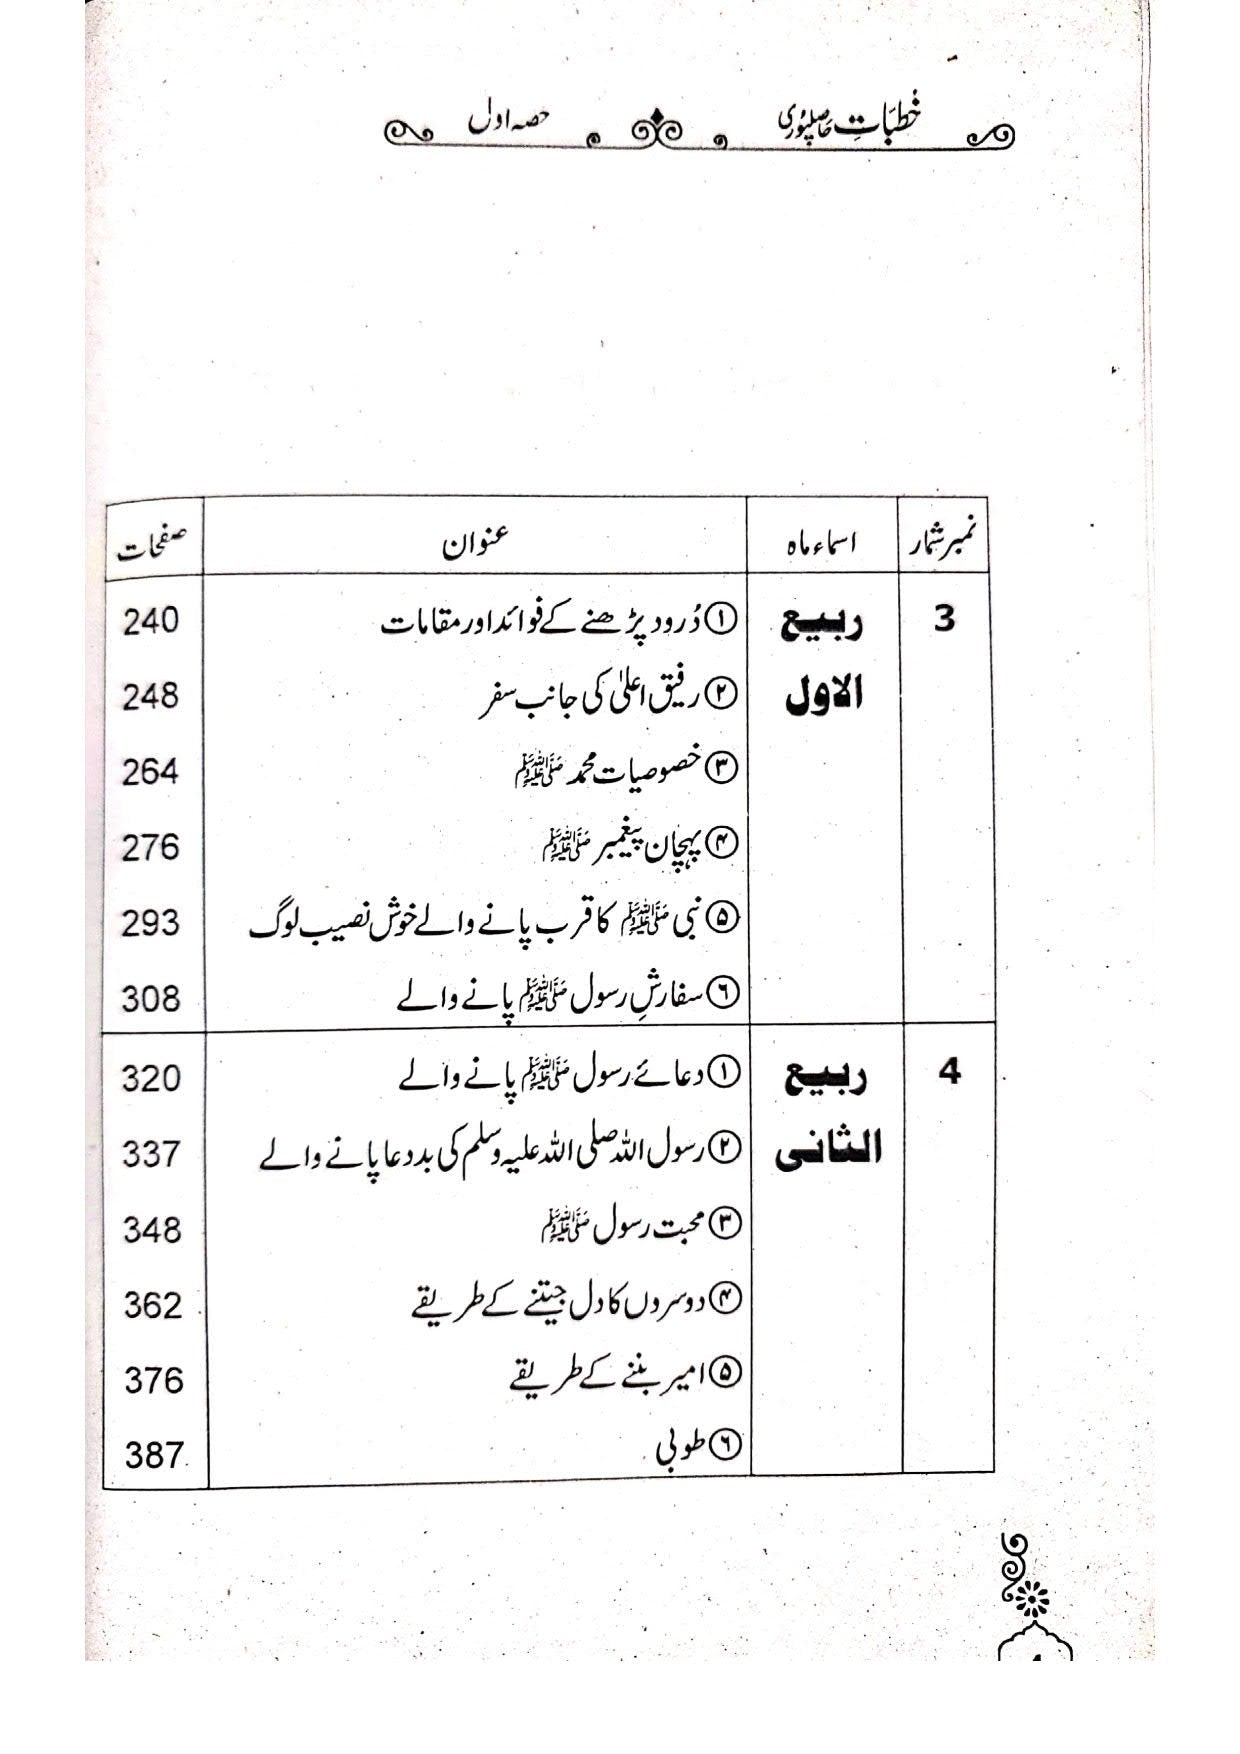 خطباتِ حاصلپوری حصہ اول
نمبر شمار اسماء ماہ عنوان صفحات
3 ربیع ۱ دُرود پڑھنے کے فوائد اور مقامات 240
الاول ۲ رفیق اعلیٰ کی جانب سفر 248
۳ خصوصیات محمد ﷺ 264
۴ پہچان پیغمبر ﷺ 276
۵ نبی ﷺ کا قرب پانے والے خوش نصیب لوگ 293
۶ سفارشِ رسول ﷺ پانے والے 308
4 ربیع ۱ دعائے رسول ﷺ پانے والے 320
الثانی ۲ رسول اللہ صلی اللہ علیہ وسلم کی بددعا پانے والے 337
۳ محبت رسول ﷺ 348
۴ دوسروں کا دل جیتنے کے طریقے 362
۵ امیر بننے کے طریقے 376
۶ طوبی 387